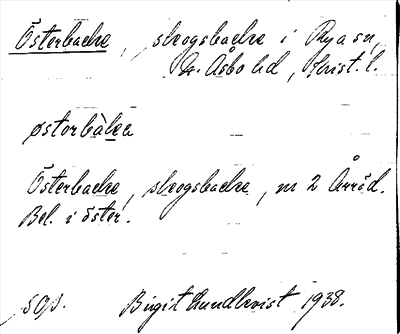 Österbacke, skogsbacke i Rya sn,
N. Åsbo hd, Krist. l.
østorbàka
Österbacke, skogsbacke, nr 2 Årröd.
Bel. i öster.
SOJ. Birgit Lundkvist 1938.